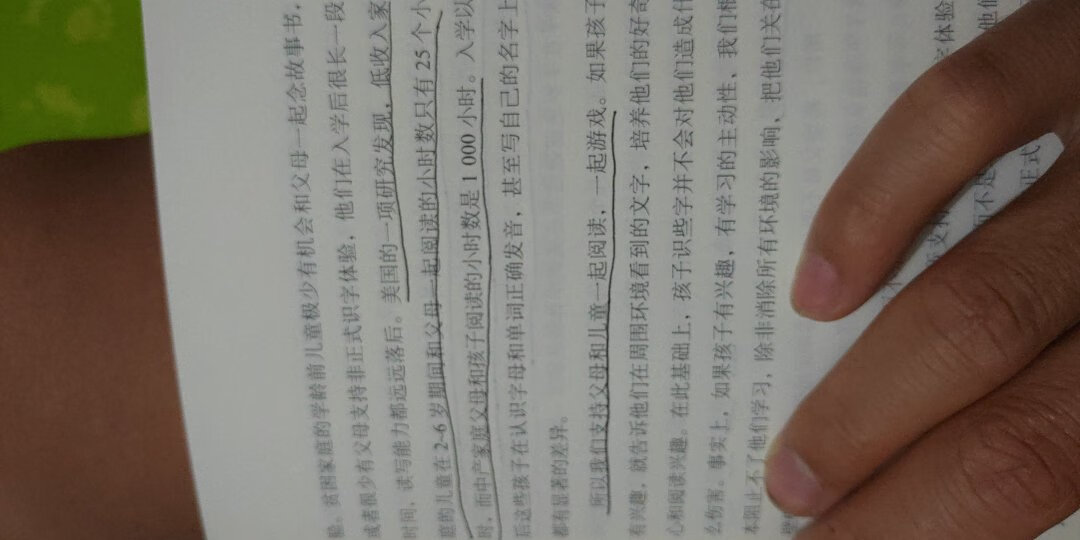 验。贫困家庭的学龄前儿童极少有机会和父母一起念故事书，
或者很少有父母支持非正式识字体验，他们在入学后很长一段
时间，读写能力都远远落后。美国的一项研究发现，低收入家
庭的儿童在2-6岁期间和父母一起阅读的小时数只有25个小
时，而中产家庭父母和孩子阅读的小时数是1 000小时。入学以
后这些孩子在认识字母和单词正确发音，甚至写自己的名字上
都有显著的差异。
所以我们支持父母和儿童一起阅读，一起游戏。如果孩子
有兴趣，就告诉他们在周围环境看到的文字，培养他们的好奇
心和阅读兴趣。在此基础上，孩子识些字并不会对他们造成什
么伤害。事实上，如果孩子有兴趣，有学习的主动性，我们根
本阻止不了他们学习，除非消除所有环境的影响，把他们关在
字体验
支持
他们
而不是
正式